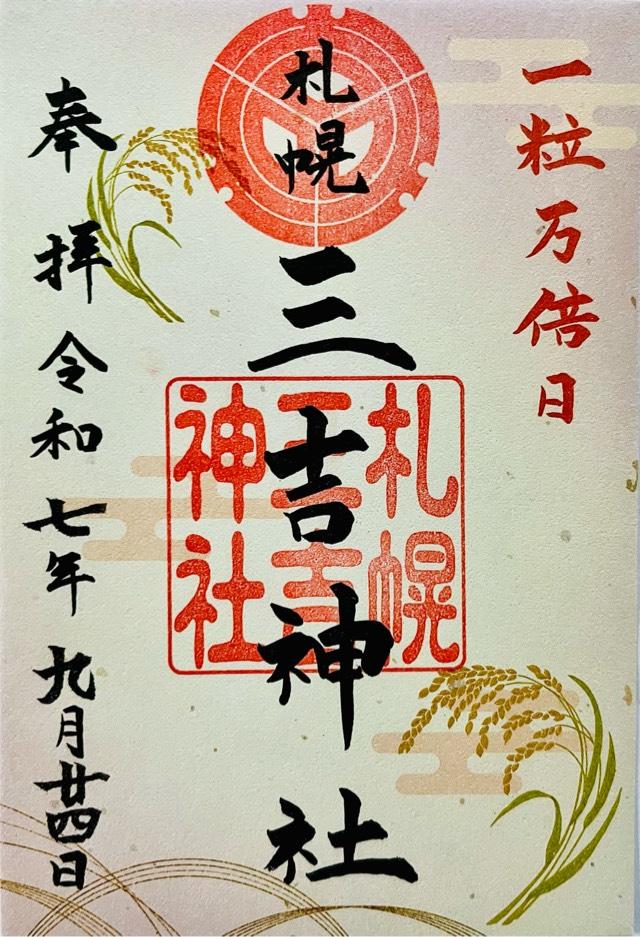 一粒万倍日
札幌
三吉神社
札幌
三吉
神社
奉拝
令和七年九月廿四日